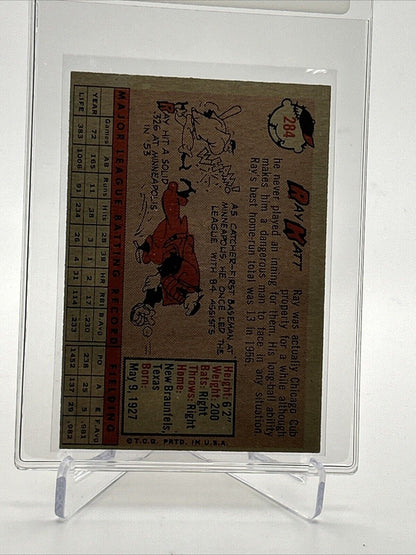 284
RAY KATT
Ray was actually Chicago Cub
property for a while although
he never played an inning for them. His longball ability
makes him a dangerous man to face in any situation.
Ray's best home-run total was 13 in 1956
Height: 6'2"
Weight: 200
Bats: Right
Throws: Right
Home:
New Braunfels,
Texas
Born:
May 9, 1927
AS CATCHER-FIRST BASEMAN AT
MINNEAPOLIS, HE ONCE LED THE
LEAGUE WITH 84 ASSISTS
RAY HIT A SOLID
.326 AT MINNEAPOLIS
IN '53
MAJOR LEAGUE BATTING RECORD FIELDING
Games AB Runs Hits 2B 3B HR RBI B.Avg PO A E F.Avg
YEAR 72 165 11 38 3 1 2 17 .230 238 25 5 .981
LIFE 383 1008 91 234 26 4 31 114 .232 1452 137 29 .982
© T.C.G. PRTD. IN U.S.A.